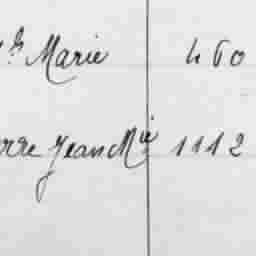 Marie 460
rre Jean Mie 1112